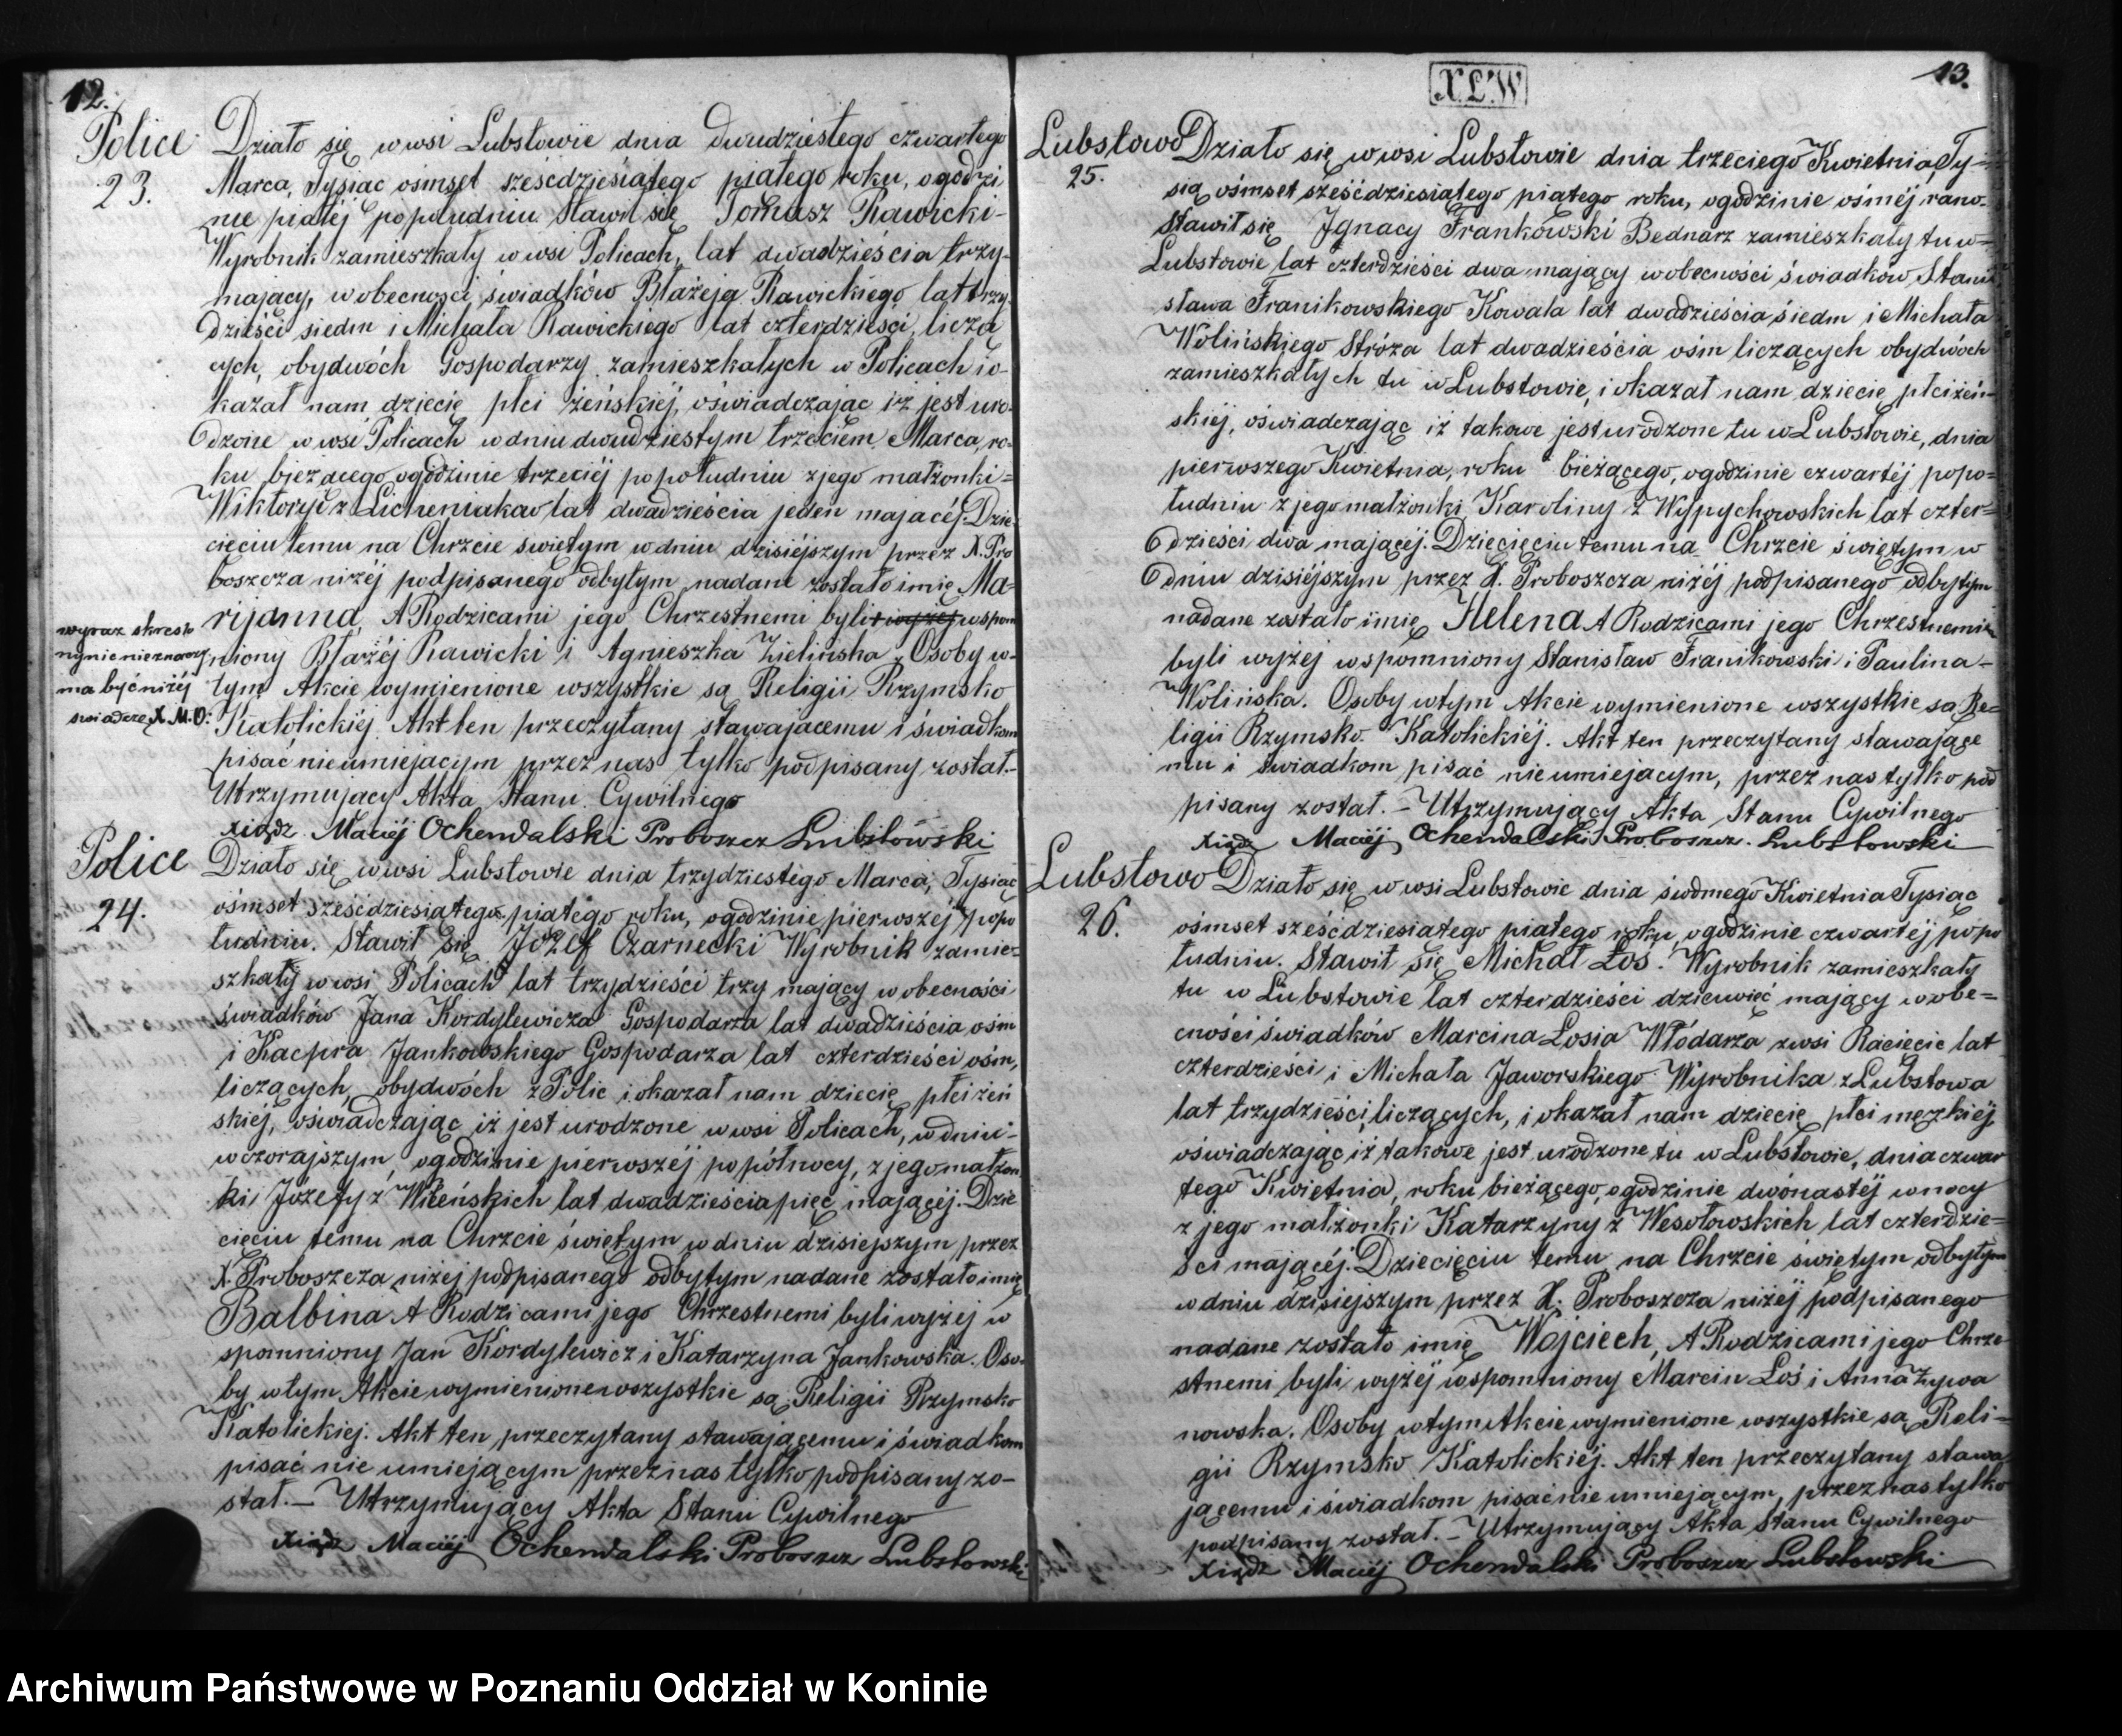 12.
Police
23.
Działo się w wsi Lubstowie dnia dwudziestego czwartego
Marca, Tysiąc ośmset sześćdziesiątego piątego roku, o godzi
nie piątéj popołudniu. Stawił się Tomasz Rawicki-
Wyrobnik zamieszkały w wsi Policach, lat dwadzieścia trzy-
mający, w obecności świadków Błażeja Rawickiego lat trzy
dzieści siedm i Michała Rawickiego lat czterdzieści, liczą
cych, obydwóch Gospodarzy zamieszkałych w Policach i o-
kazał nam dziecię płci żeńskiéj, oświadczając iż jest uro-
dzone w wsi Policach w dniu dwudziestym trzeciem Marca, ro-
ku bieżącego, ogodzinie trzeciéj popołudniu z jego małżonki=
Wiktoryi z Licheniaków lat dwadzieścia jeden mającéj. Dzie-
cięciu temu na Chrzcie świętym w dniu dzisiéjszym przez X. Pro
boszcza niżéj podpisanego odbytym nadane zostało imię Ma-
rijanna, A Rodzicami jego Chrzestnemi byli wyżej wspom
niony Błażéj Rawicki i Agnieszka Zielińska. Osoby w-
tym Akcie wymienione wszystkie są Religii Rzymsko
Katolickiéj. Akt ten przeczytany stawającemu i świadkom
pisać nieumiejącym przez nas tylko podpisany został.-
Utrzymujący Akta Stanu Cywilnego
Xiądz Maciéj Ochendalski Proboszcz Lubstowski
wyraz skreslo
ny nic nieznaczy
ma być niżéj
swiadczę X. M. O:
Police
24.
Działo się w wsi Lubstowie dnia trzydziestego Marca, Tysiąc
ośmset sześćdziesiątego piątego roku, ogodzinie pierwszéj popo
łudniu. Stawił się Józef Czarnecki Wyrobnik zamie-
szkały w wsi Policach lat trzydzieści trzy mający w obecności
świadków Jana Kordylewicza Gospodarza lat dwadzieścia ośm
i Kacpra Jankowskiego Gospodarza lat czterdzieści ośm,
liczących obydwóch z Polic i okazał nam dziecię płci żeń
skiéj, oświadczając iż jest urodzone w wsi Policach, w dniu-
wczorajszym, ogodzinie pierwszéj popółnocy, z jego małżon
ki Józefy z Wileńskich lat dwadzieścia pięć mającéj. Dzie
cięciu temu na Chrzcie świętym w dniu dzisiejszym przez
X. Proboszcza niżej podpisanego odbytym nadane zostało imię
Balbina A Rodzicami jego Chrzestnemi byli wyżej w
spomniony Jan Kordylewicz i Katarzyna Jankowska. Oso-
by w tym Akcie wymienione wszystkie są Religii Rzymsko
Katolickiej. Akt ten przeczytany stawającemu i świadkom
pisać nie umiejącym przez nas tylko podpisany zo-
stał.- Utrzymujący Akta Stanu Cywilnego
Xiądz Maciéj Ochendalski Proboszcz Lubstowski
X.Ł.W
13.
Lubstowo
25.
Działo się w wsi Lubstowie dnia trzeciego Kwietnia Ty-
siąc ośmset sześćdziesiątego piątego roku, ogodzinie ósméj rano.
Stawił się Ignacy Frankowski Bednarz zamieszkały tu w=
Lubstowie lat czterdzieści dwa mający w obecności świadków Stani
sława Franikowskiego Kowala lat dwadzieścia siedm i Michała
Wolińskiego Stróża lat dwadzieścia ośm liczących obydwóch
zamieszkałych tu w Lubstowie, i okazał nam dziecię płci żeń-
skiéj, oświadczając iż takowe jest urodzone tu w Lubstowie, dnia
pierwszego Kwietnia, roku bieżącego, ogodzinie czwartéj popo=
łudniu z jego małżonki Karoliny z Wypychowskich lat czter=
dzieści dwa mającéj. Dziecięciu temu na Chrzcie świętym w
dniu dzisiéjszym przez X. Proboszcza niżéj podpisanego odbytym
nadane zostało imię Helena A Rodzicami jego Chrzestnemi
byli wyżéj wspomniony Stanisław Franikowski i Paulina-
Wolińska. Osoby w tym Akcie wymienione wszystkie są Re-
ligii Rzymsko Katolickiéj. Akt ten przeczytany stawające
mu i świadkom pisać nieumiejącym, przez nas tylko pod
pisany został.- Utrzymujący Akta Stanu Cywilnego
Xiądz Maciéj Ochendalski Proboszcz. Lubstowski
Lubstowo
26.
Działo się w wsi Lubstowie dnia śiódmego Kwietnia Tysiąc
ośmset sześćdziesiątego piątego roku, ogodzinie czwartéj popo
łudniu. Stawił się Michał Łoś. Wyrobnik zamieszkały
tu w Lubstowie lat czterdzieści dziewięć mający w obe=
cności świadków Marcina Łosia Włódarza z wsi Racięcic lat
czterdzieści i Michała Jaworskiego Wyrobnika z Lubstowa
lat trzydzieści, liczących, i okazał nam dziecię płci męzkiéj,
oświadczając iż takowe jest urodzone tu w Lubstowie, dnia czwar
tego Kwietnia, roku bieżącego, ogodzinie dwónastéj w nocy
z jego małżonki Katarzyny z Wesołowskich lat czterdzie=
ści mającéj. Dziecięciu temu na Chrzcie świętym odbytym
w dniu dzisiejszym przez X. Proboszcza niżéj podpisanego
nadane zostało imię Wojciech, A Rodzicami jego Chrze
stnemi byli wyżéj wspomniony Marcin Łoś i Anna Żywa
nowska. Osoby w tym Akcie wymienione wszystkie są Reli=
gii Rzymsko Katolickiéj. Akt ten przeczytany stawa
jącemu i świadkom pisać nie umiejącym, przez nas tylko
podpisany został.- Utrzymujący Akta Stanu Cywilnego
Xiądz Maciéj Ochendalski Proboszcz Lubstowski
Archiwum Państwowe w Poznaniu Oddział w Koninie